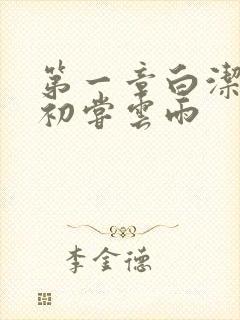 第一章白潔
初嘗雲雨
李金德